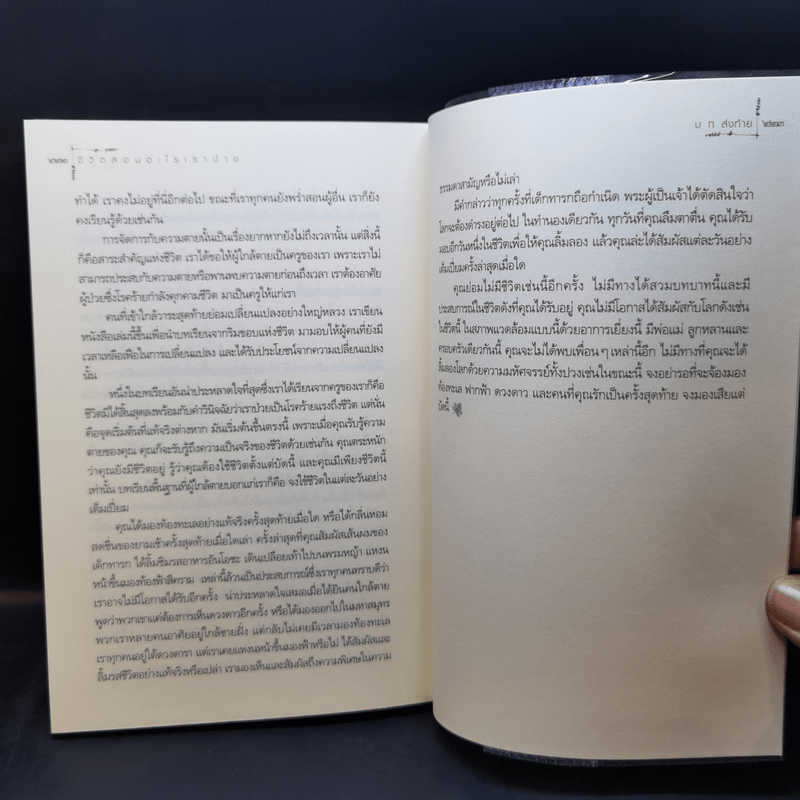 ชีวิตสอนอะไรเราบ้าง
ทำได้ เราคงไม่อยู่ที่นี่อีกต่อไป ขณะที่เราทุกคนยังพร่ำสอนผู้อื่น เราก็ยัง
คงเรียนรู้ด้วยเช่นกัน
การจัดการกับความตายนั้นเป็นเรื่องยากหากยังไม่ถึงเวลานั้น แต่สิ่งนี้
ก็คือสาระสำคัญแห่งชีวิต เราได้ขอให้ผู้ใกล้ตายเป็นครูของเรา เพราะเราไม่
สามารถประสบกับความตายหรือพานพบความตายก่อนถึงเวลา เราต้องอาศัย
ผู้ป่วยซึ่งโรคร้ายกำลังคุกคามชีวิต มาเป็นครูให้แก่เรา
คนที่เข้าใกล้วาระสุดท้ายย่อมเปลี่ยนแปลงอย่างใหญ่หลวง เราเขียน
หนังสือเล่มนี้ขึ้นเพื่อนำบทเรียนจากริมขอบแห่งชีวิต มามอบให้ผู้คนที่ยังมี
เวลาเหลือเฟือในการเปลี่ยนแปลง และได้รับประโยชน์จากความเปลี่ยนแปลง
นั้น
หนึ่งในบทเรียนอันน่าประหลาดใจที่สุดซึ่งเราได้เรียนจากครูของเราก็คือ
ชีวิตมิได้สิ้นสุดลงพร้อมกับคำวินิจฉัยว่าเราป่วยเป็นโรคร้ายแรงถึงชีวิต แต่นั่น
คือจุดเริ่มต้นที่แท้จริงต่างหาก มันเริ่มต้นขึ้นตรงนี้ เพราะเมื่อคุณรับรู้ความ
ตายของคุณ คุณก็จะรับรู้ถึงความเป็นจริงของชีวิตด้วยเช่นกัน คุณตระหนัก
ว่าคุณยังมีชีวิตอยู่ รู้ว่าคุณต้องใช้ชีวิตตั้งแต่บัดนี้ และคุณมีเพียงชีวิตนี้
เท่านั้น บทเรียนพื้นฐานที่ผู้ใกล้ตายบอกแก่เราก็คือ จงใช้ชีวิตในแต่ละวันอย่าง
เต็มเปี่ยม
คุณได้มองท้องทะเลอย่างแท้จริงครั้งสุดท้ายเมื่อใด หรือได้กลิ่นหอม
สดชื่นของยามเช้าครั้งสุดท้ายเมื่อใดเล่า ครั้งล่าสุดที่คุณสัมผัสเส้นผมของ
เด็กทารก ได้ลิ้มชิมรสอาหารอันโอชะ เดินเปลือยเท้าไปบนพรมหญ้า แหงน
หน้าขึ้นมองท้องฟ้าสีคราม เหล่านี้ล้วนเป็นประสบการณ์ซึ่งเราทุกคนทราบดีว่า
เราอาจไม่มีโอกาสได้รับอีกครั้ง น่าประหลาดใจเสมอเมื่อได้ยินคนใกล้ตาย
พูดว่าพวกเขาแค่ต้องการเห็นดวงดาวอีกครั้ง หรือได้มองออกไปในมหาสมุทร
พวกเราหลายคนอาศัยอยู่ใกล้ชายฝั่ง แต่กลับไม่เคยมีเวลามองท้องทะเล
เราทุกคนอยู่ใต้ดวงดารา แต่เราเคยแหงนหน้าขึ้นมองฟ้าหรือไม่ ได้สัมผัสและ
ลิ้มรสชีวิตอย่างแท้จริงหรือเปล่า เรามองเห็นและสัมผัสถึงความพิเศษในความ
บทส่งท้าย
ธรรมดาสามัญหรือไม่เล่า
มีคำกล่าวว่าทุกครั้งที่เด็กทารกถือกำเนิด พระผู้เป็นเจ้าได้ตัดสินใจว่า
โลกจะต้องดำรงอยู่ต่อไป ในทำนองเดียวกัน ทุกวันที่คุณลืมตาตื่น คุณได้รับ
มอบอีกวันหนึ่งในชีวิตเพื่อให้คุณลิ้มลอง แล้วคุณล่ะได้สัมผัสแต่ละวันอย่าง
เต็มเปี่ยมครั้งล่าสุดเมื่อใด
คุณย่อมไม่มีชีวิตเช่นนี้อีกครั้ง ไม่มีทางได้สวมบทบาทนี้และมี
ประสบการณ์ในชีวิตดังที่คุณได้รับอยู่ คุณไม่มีโอกาสได้สัมผัสกับโลกดังเช่น
ในชีวิตนี้ ในสภาพแวดล้อมแบบนี้ด้วยอาการเยี่ยงนี้ มีพ่อแม่ ลูกหลานและ
ครอบครัวเดียวกันนี้ คุณจะไม่ได้พบเพื่อนๆ เหล่านี้อีก ไม่มีทางที่คุณจะได้
ลิ้มลองโลกด้วยความมหัศจรรย์ทั้งปวงเช่นในขณะนี้ จงอย่ารอที่จะจ้องมอง
ท้องทะเล ฟากฟ้า ดวงดาว และคนที่คุณรักเป็นครั้งสุดท้าย จงมองเสียแต่
บัดนี้